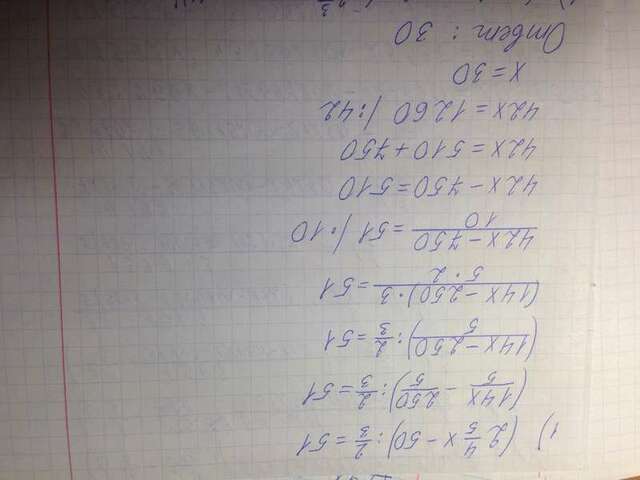 1) (2 4/5 x - 50) : 2/3 = 51
(14x/5 - 250/5) : 2/3 = 51
(14x - 250/5) : 2/3 = 51
(14x - 250) · 3/5 · 2 = 51
42x - 750/10 = 51 | · 10
42x - 750 = 510
42x = 510 + 750
42x = 1260 | : 42
x = 30
Ответ : 30